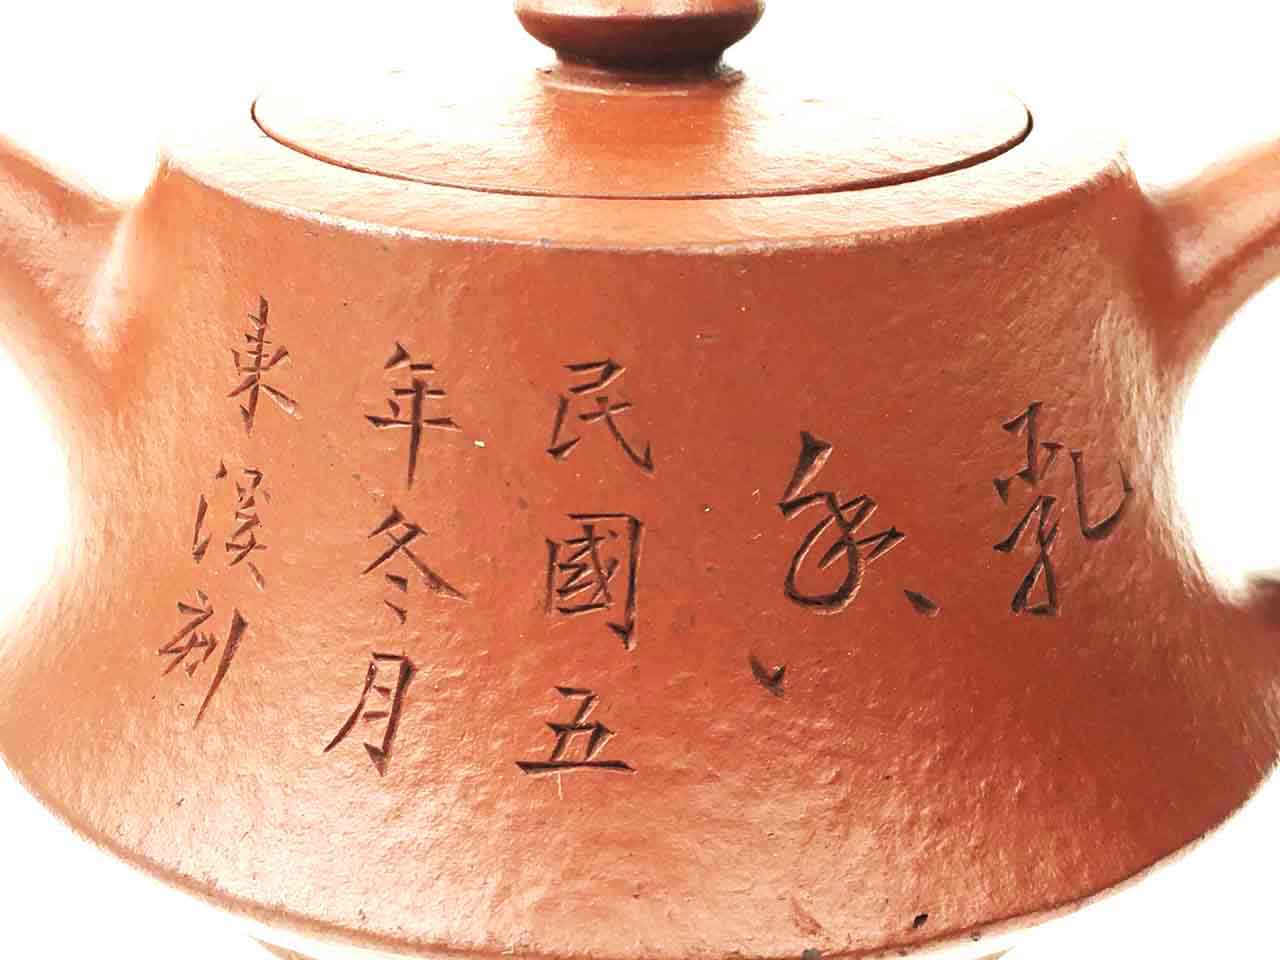 乳
民國五
年冬月
東溪刻